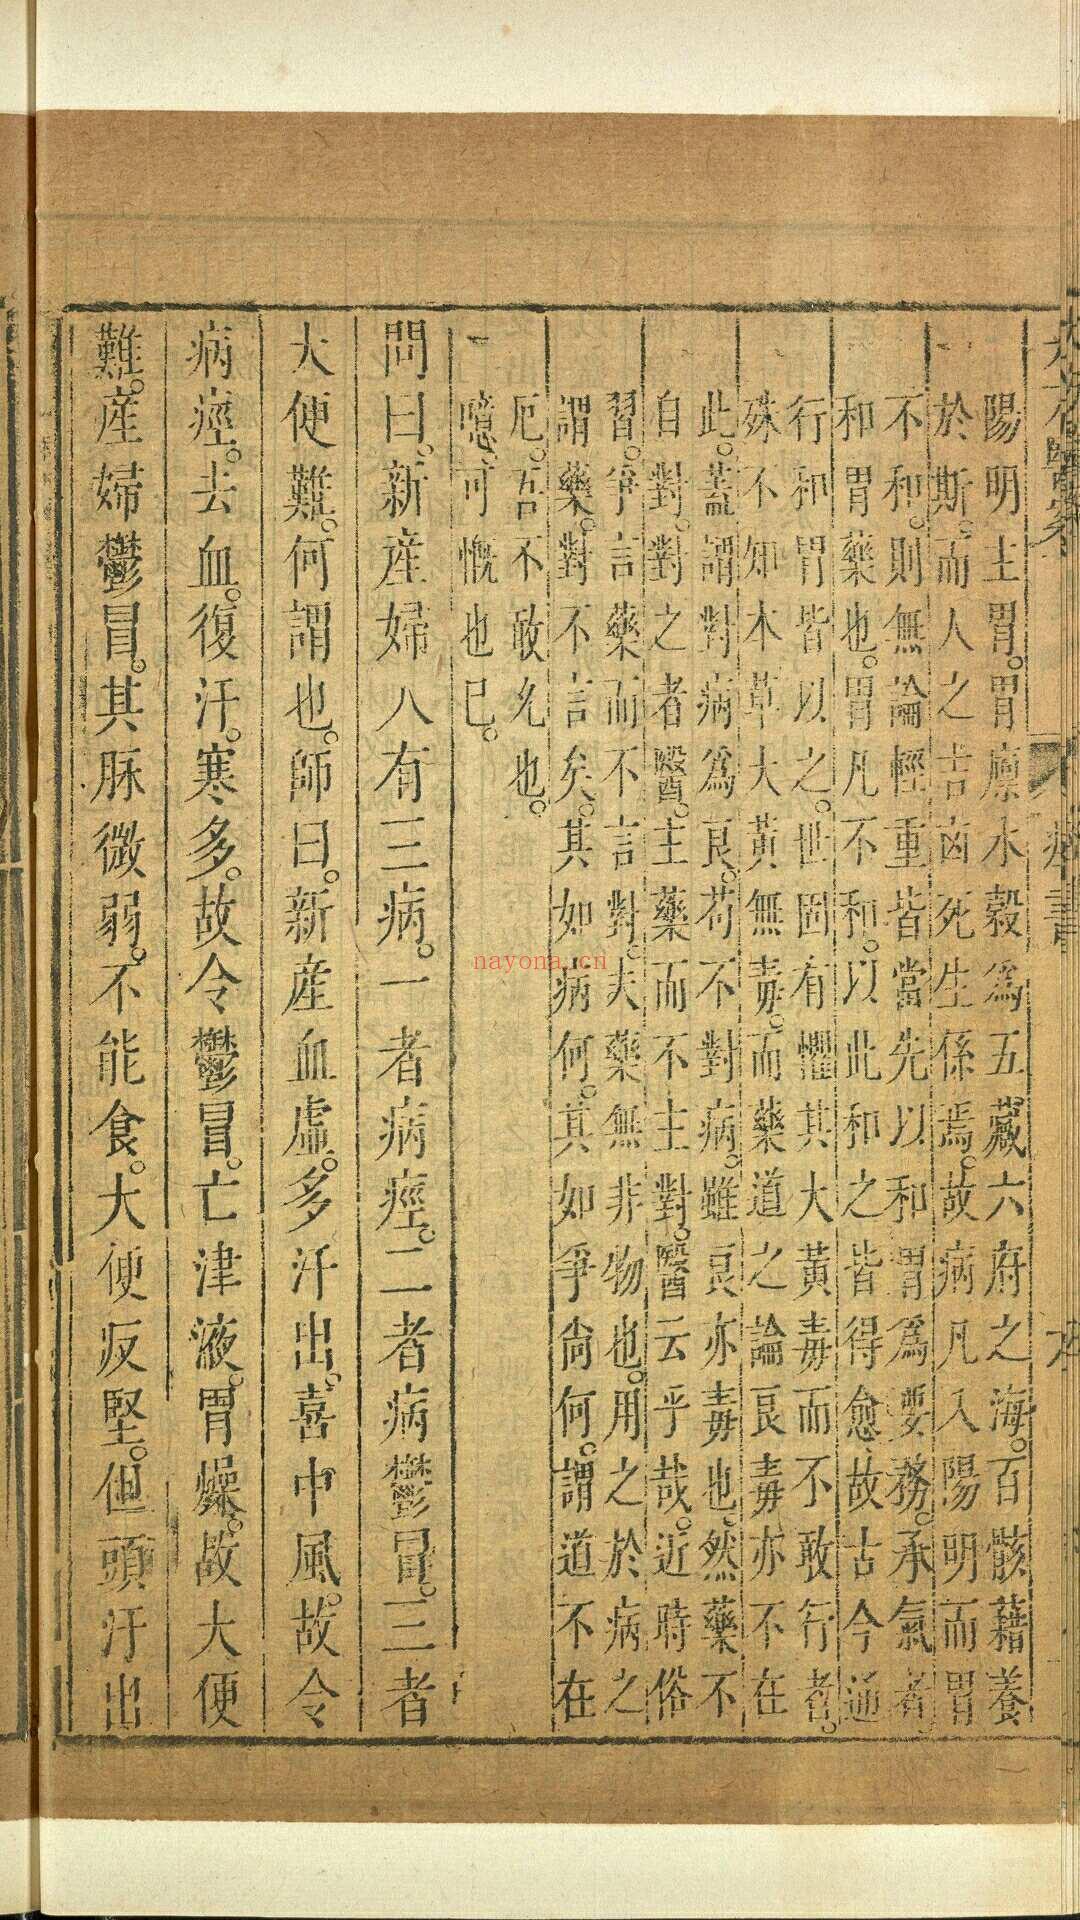 陽明主胃。胃廩水穀爲五藏六府之海。百骸藉養
於斯。而人之吉凶死生係焉。故病凡入陽明而胃
不和。則無論輕重皆當先以和胃爲要務。承氣者。
和胃藥也。胃凡不和。以此和之皆得愈。故古今通
行和胃皆以之。世固有懼其大黃毒而不敢行者。
殊不知本草大黃無毒。而藥道之論良毒亦不在
此。蓋謂對病爲良。苟不對病。雖良亦毒也。然藥不
自對。對之者醫。主藥而不主對。醫云乎哉。近時俗
習。爭言藥而不言對。夫藥無非物也。用之於病之
謂藥。對不言矣。其如病何。其如爭尙何。謂道不在
厄。吾不敢允也。
噫。可慨也已。
問曰。新產婦人有三病。一者病痙。二者病鬱冒。三者
大便難。何謂也。師曰。新產血虛。多汗出。喜中風。故令
病痙。去血。復汗。寒多。故令鬱冒。亡津液。胃燥。故大便
難。產婦鬱冒。其脉微弱。不能食。大便反堅。但頭汗出
nayona.cn